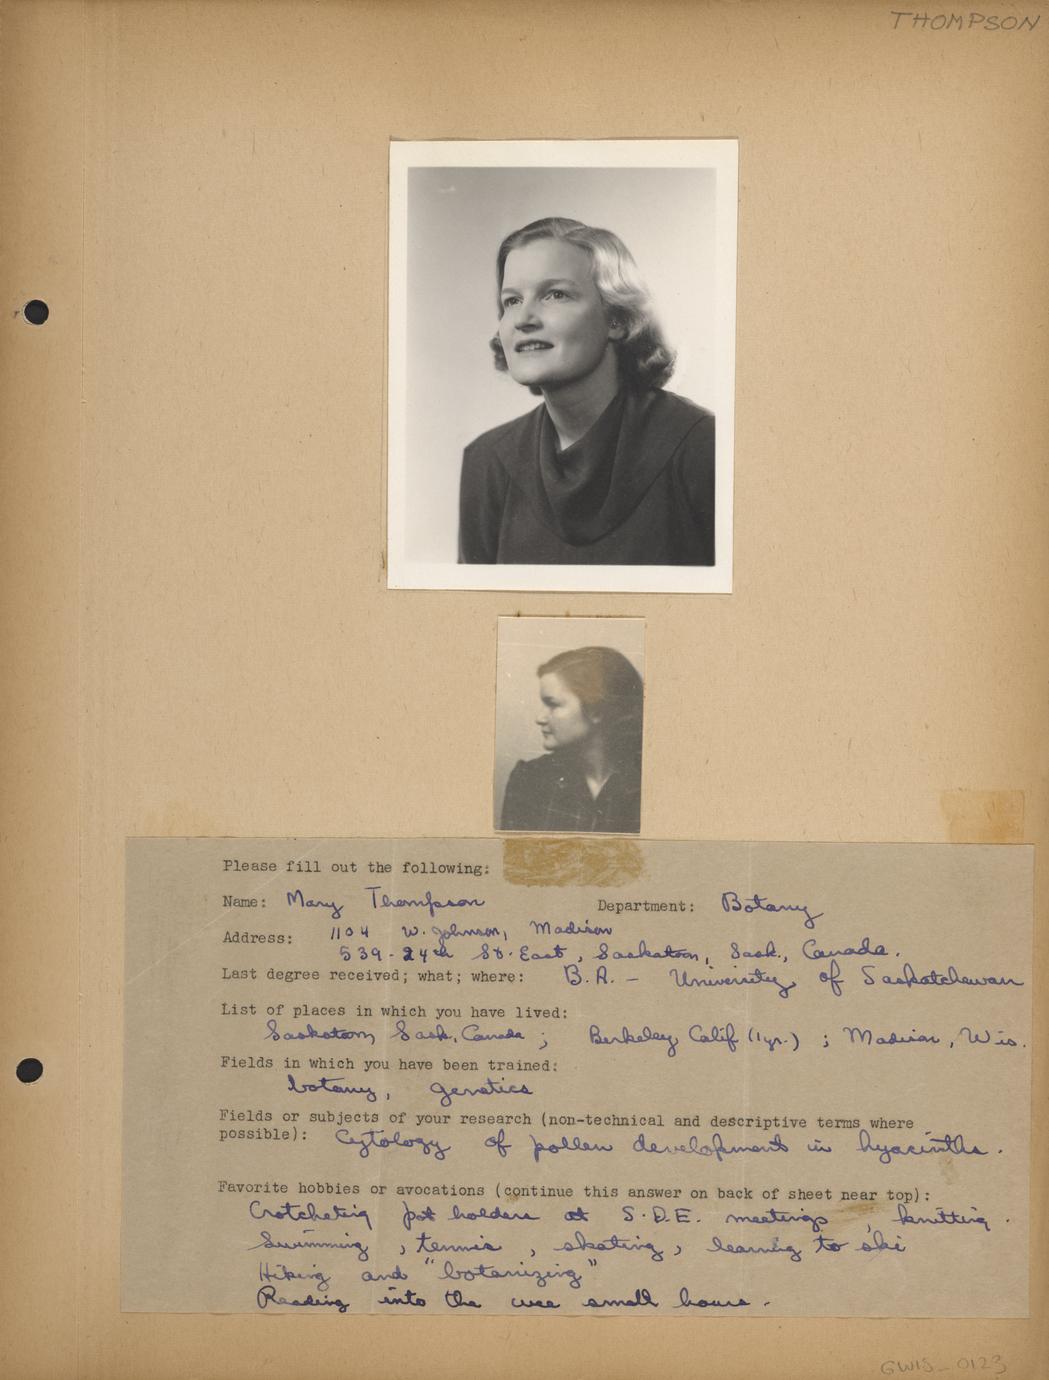 THOMPSON
Please fill out the following:
Name: Mary Thompson Department: Botany
Address: 1104 W. Johnson, Madison
539-24th St. East, Saskatoon, Sask., Canada.
Last degree received; what; where: B.A. - University of Saskatchewan
List of places in which you have lived:
Saskatoon, Sask, Canada ; Berkeley Calif (1 yr.) ; Madison, Wis.
Fields in which you have been trained:
botany, genetics
Fields or subjects of your research (non-technical and descriptive terms where
possible): Cytology of pollen development in hyacinths.
Favorite hobbies or avocations (continue this answer on back of sheet near top):
Crotcheting pot holders at S.D.E. meetings , knitting .
Swimming , tennis , skating , learning to ski
Hiking and "botanizing"
Reading into the wee small hours .
GWIS_0123